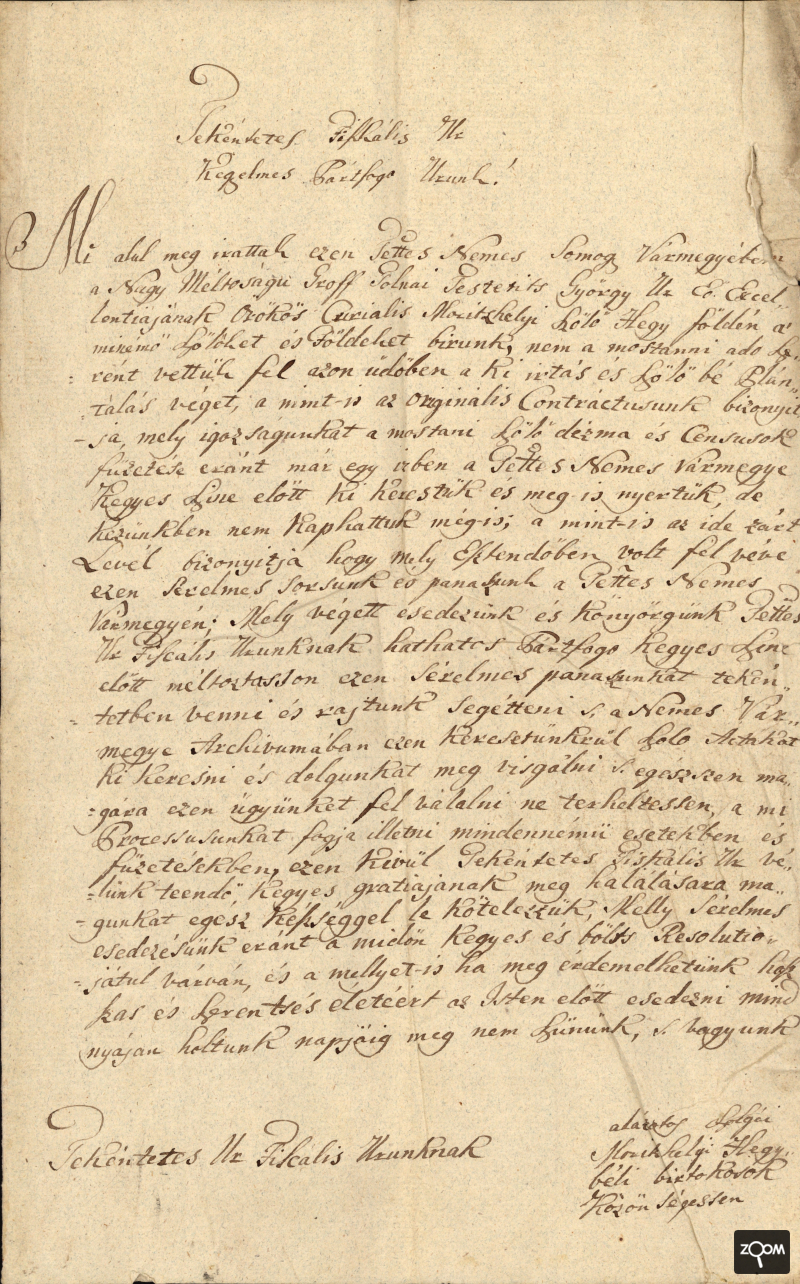 Tekéntetes Fiskális Ur
Kegyelmes Pártfogo Urunk!
Mi alul meg irattak ezen Tettes Nemes Somog Vármegyében
a Nagy Méltoságu Groff Tolnai Festetits György Ur Eö Excel
lentiájának Örökös Curialis Moritzhelyi Szöllö Hegy földén a'
minémö Szölöket és Földeket birunk, nem a mostanni ado sze-
rént vettük fel azon üdöben a ki irtás es Szölö bé Plán-
tálás véget, a mint-is az originális Contráctusunk bizonyit
ja, mely igazságunkat a mostani Szölö dézma és Censusok
füzetése eránt már egy izben a Tettes Nemes Vármegye
Kegyes Szine elött ki kerestük és meg-is nyertük, de
kezünkben nem kaphattuk még-is; a mint-is az ide zárt
Levél bizonyitja hogy mely Esztendöben volt fel véve
ezen sérelmes sorsunk és panaszunk a Tettes Nemes
Vármegyén; Mely végett esedezünk és könyörgünk Tettes
Ur Fiscális Urunknak hathatos Pártfogo Kegyes Szine
elött méltoztasson ezen Sérelmes panaszunkat tekén-
tetben venni és rajtunk segétteni s, a Nemes Vár-
megye Archivumában ezen keresetünkrül szólo Actákat
ki keresni és dolgunkat meg visgálni s, egészszen ma-
gára ezen ügyünket fel válalni ne terheltessen, a mi
Processusunkat fogja illetni mindennémü esetekben és
füzetésekben, ezen kivül Tekéntetes Fiskális Ur vé-
lünk teendö, kegyes gratiájának meg hálálására ma-
gunkat egesz késséggel le kötelezzük, Melly Sérelmes
esedezésünk eránt a midön kegyes és bölts Resolutio-
játul várván, és a mellyet-is ha meg érdemelhetünk hosz
szas és szerentsés életéért az Isten elött esedezni mind
nyájan holtunk napjáig meg nem szününk, s vagyunk
Tekéntetes Ur Fiscalis Urunknak
alázatos szolgái
Moritzhelyi Hegy-
béli birtokosok
Közönségessen
ZOOM